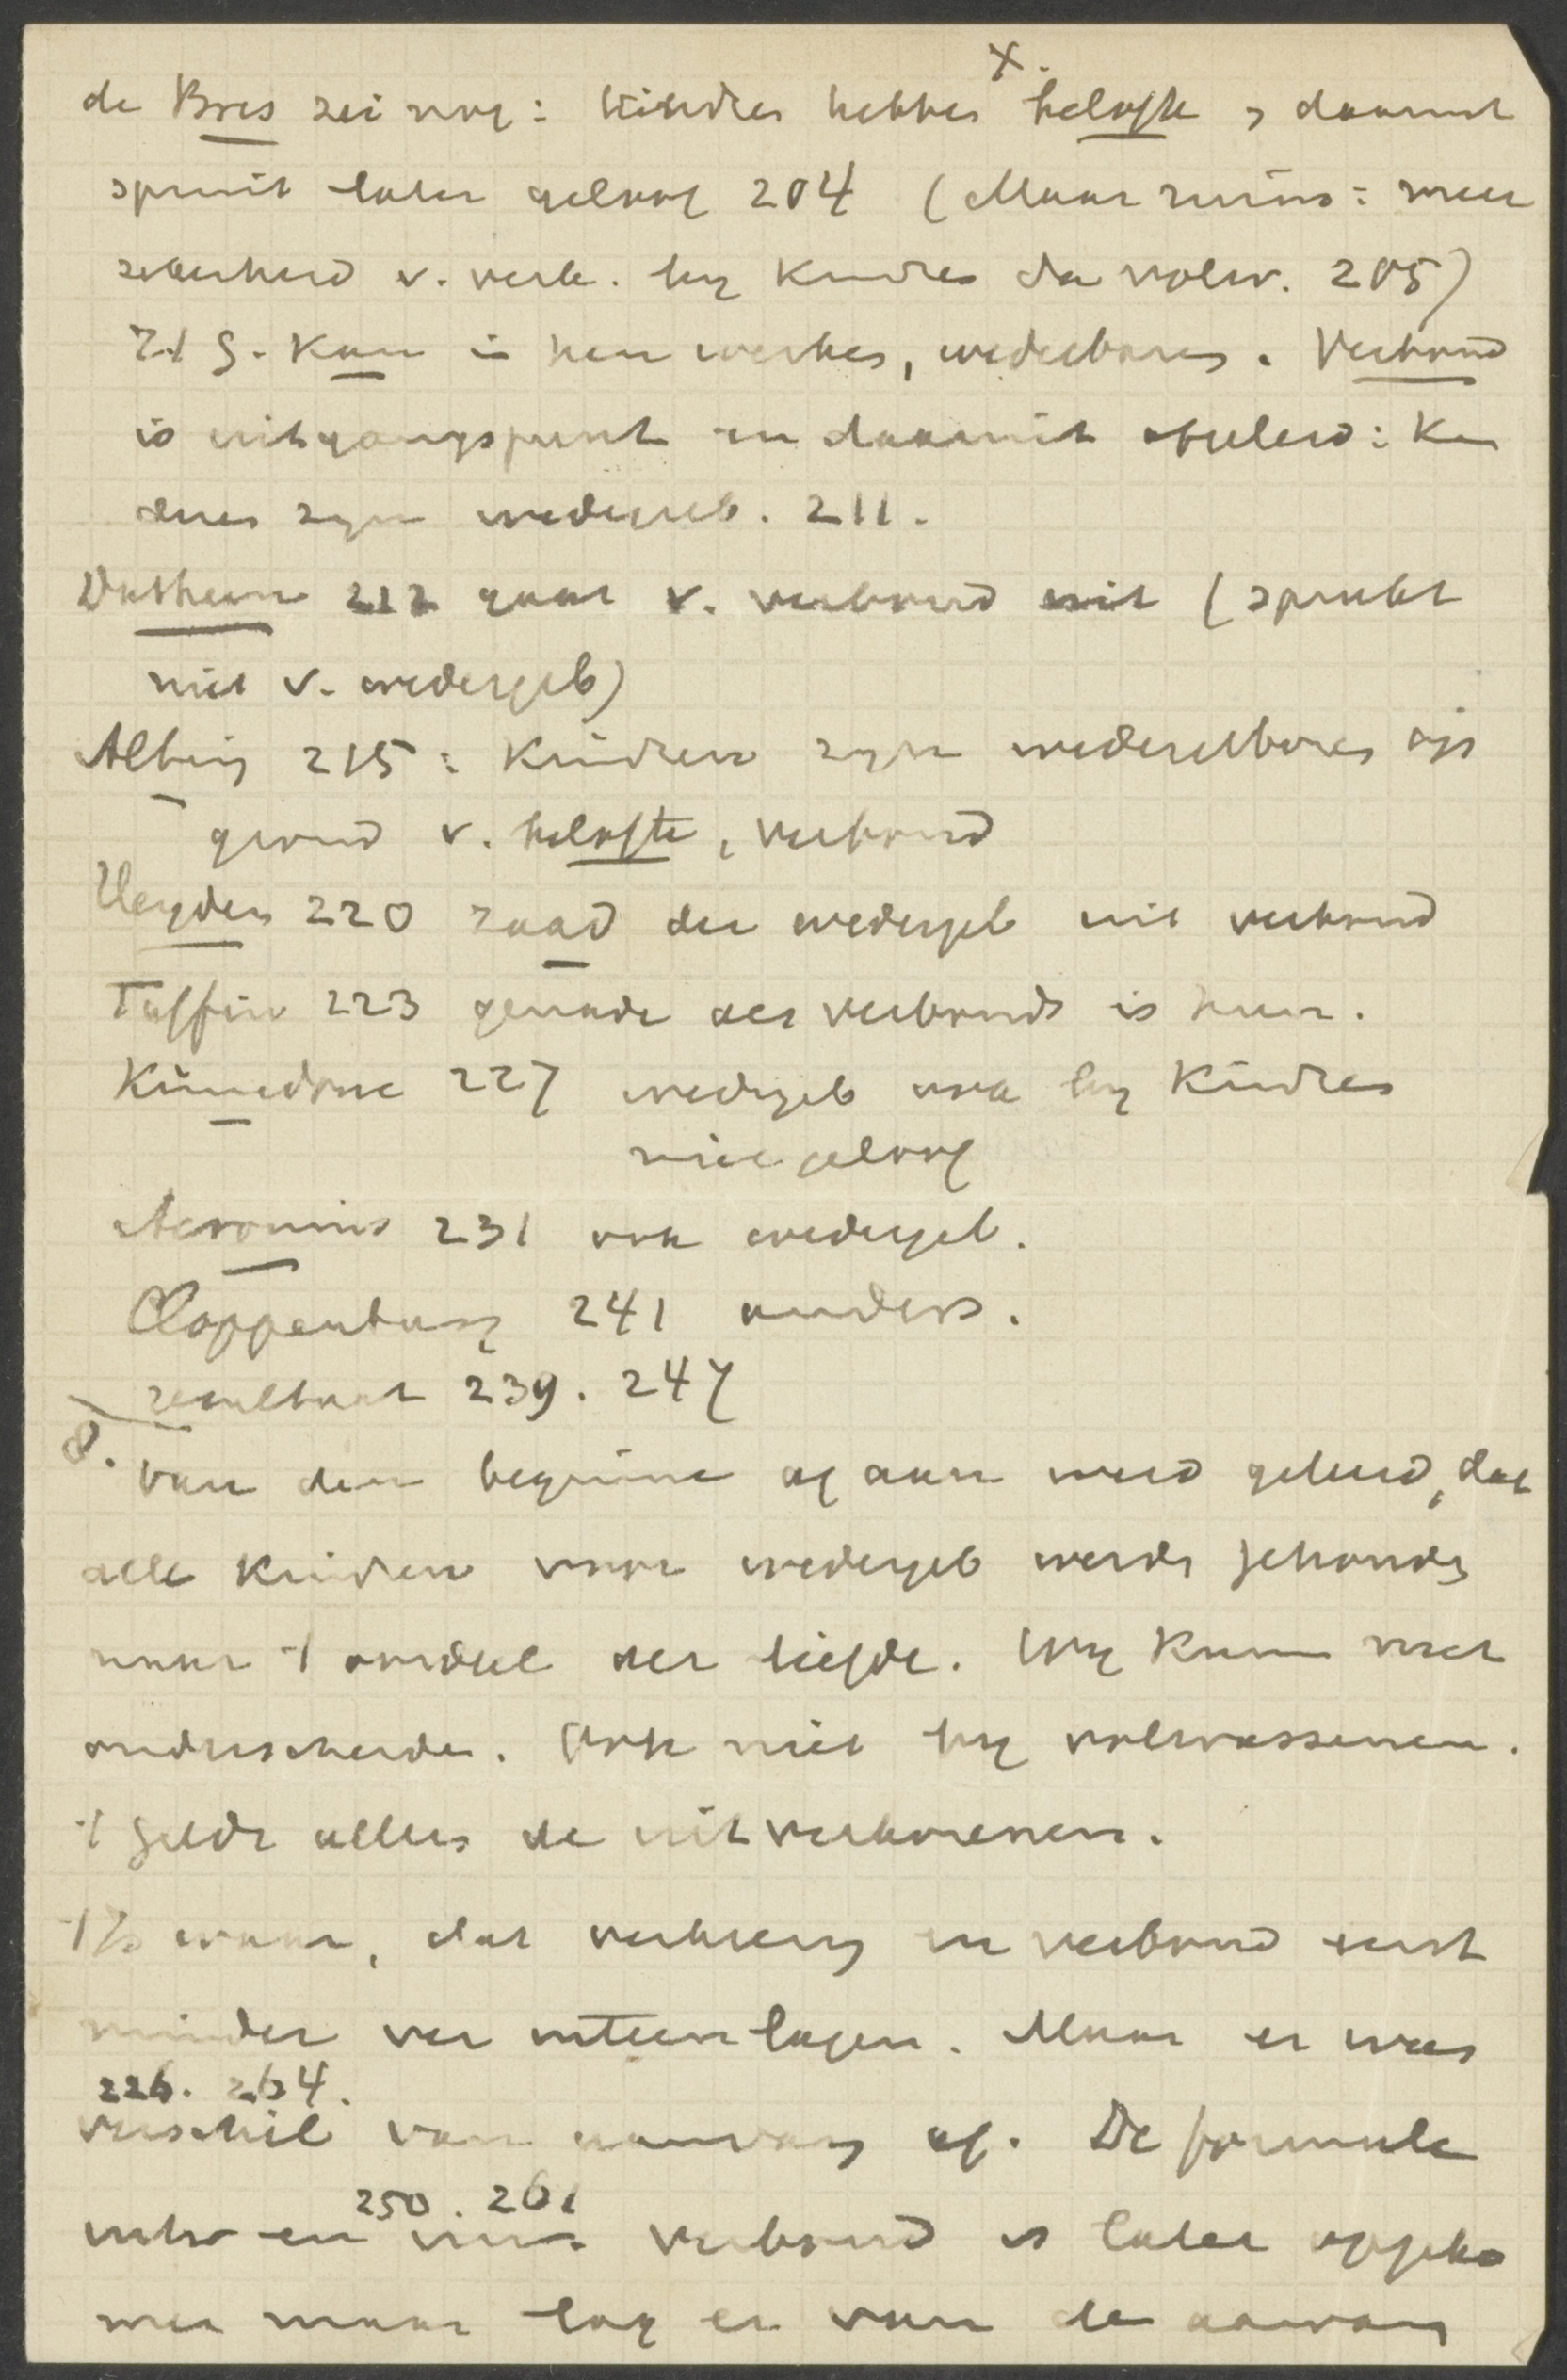 X.
de Bres zei nog: kindren hebben belofte, daaruit
spruit later geloof 204 (Maar zeins: meer
zekerheid v. verk. by kindren da volw. 205)
H G. kan in hen werken, wederbaren. Verbond
is uitgangspunt en daaruit afgeleid: kin
dren zyn wedergeb. 211.
Datheen 212 gaat v. verbond uit (spreekt
niet v. wedergeb)
Alting 215: kindren zyn wedergeboren op
grond v. belofte, verbond
Heyden 220 zaad der wedergeb uit verbond
Taffin 223 genade des verbonds is hun.
Kimedonc 227 wedergeb ook by kindren
niet geloof
Acronius 231 ook wedergeb.
Cloppenburg 241 anders.
resultaat 239. 247
8. van den beginne af aan werd geleerd, dat
alle kindren voor wedergeb werden gehouden
naar 't oordeel der liefde. Wy kunn niet
onderscheiden. Ook niet by volwassenen.
't geldt alleen de uitverkorenen.
't Is waar, dat verkiezing en verbond eerst
minder ver uiteen lagen. Maar er was
226. 264.
verschil van aanvang af. De formule
250. 261
uitw en inw. verbond is later opgeko
men maar lag er van de aanvang